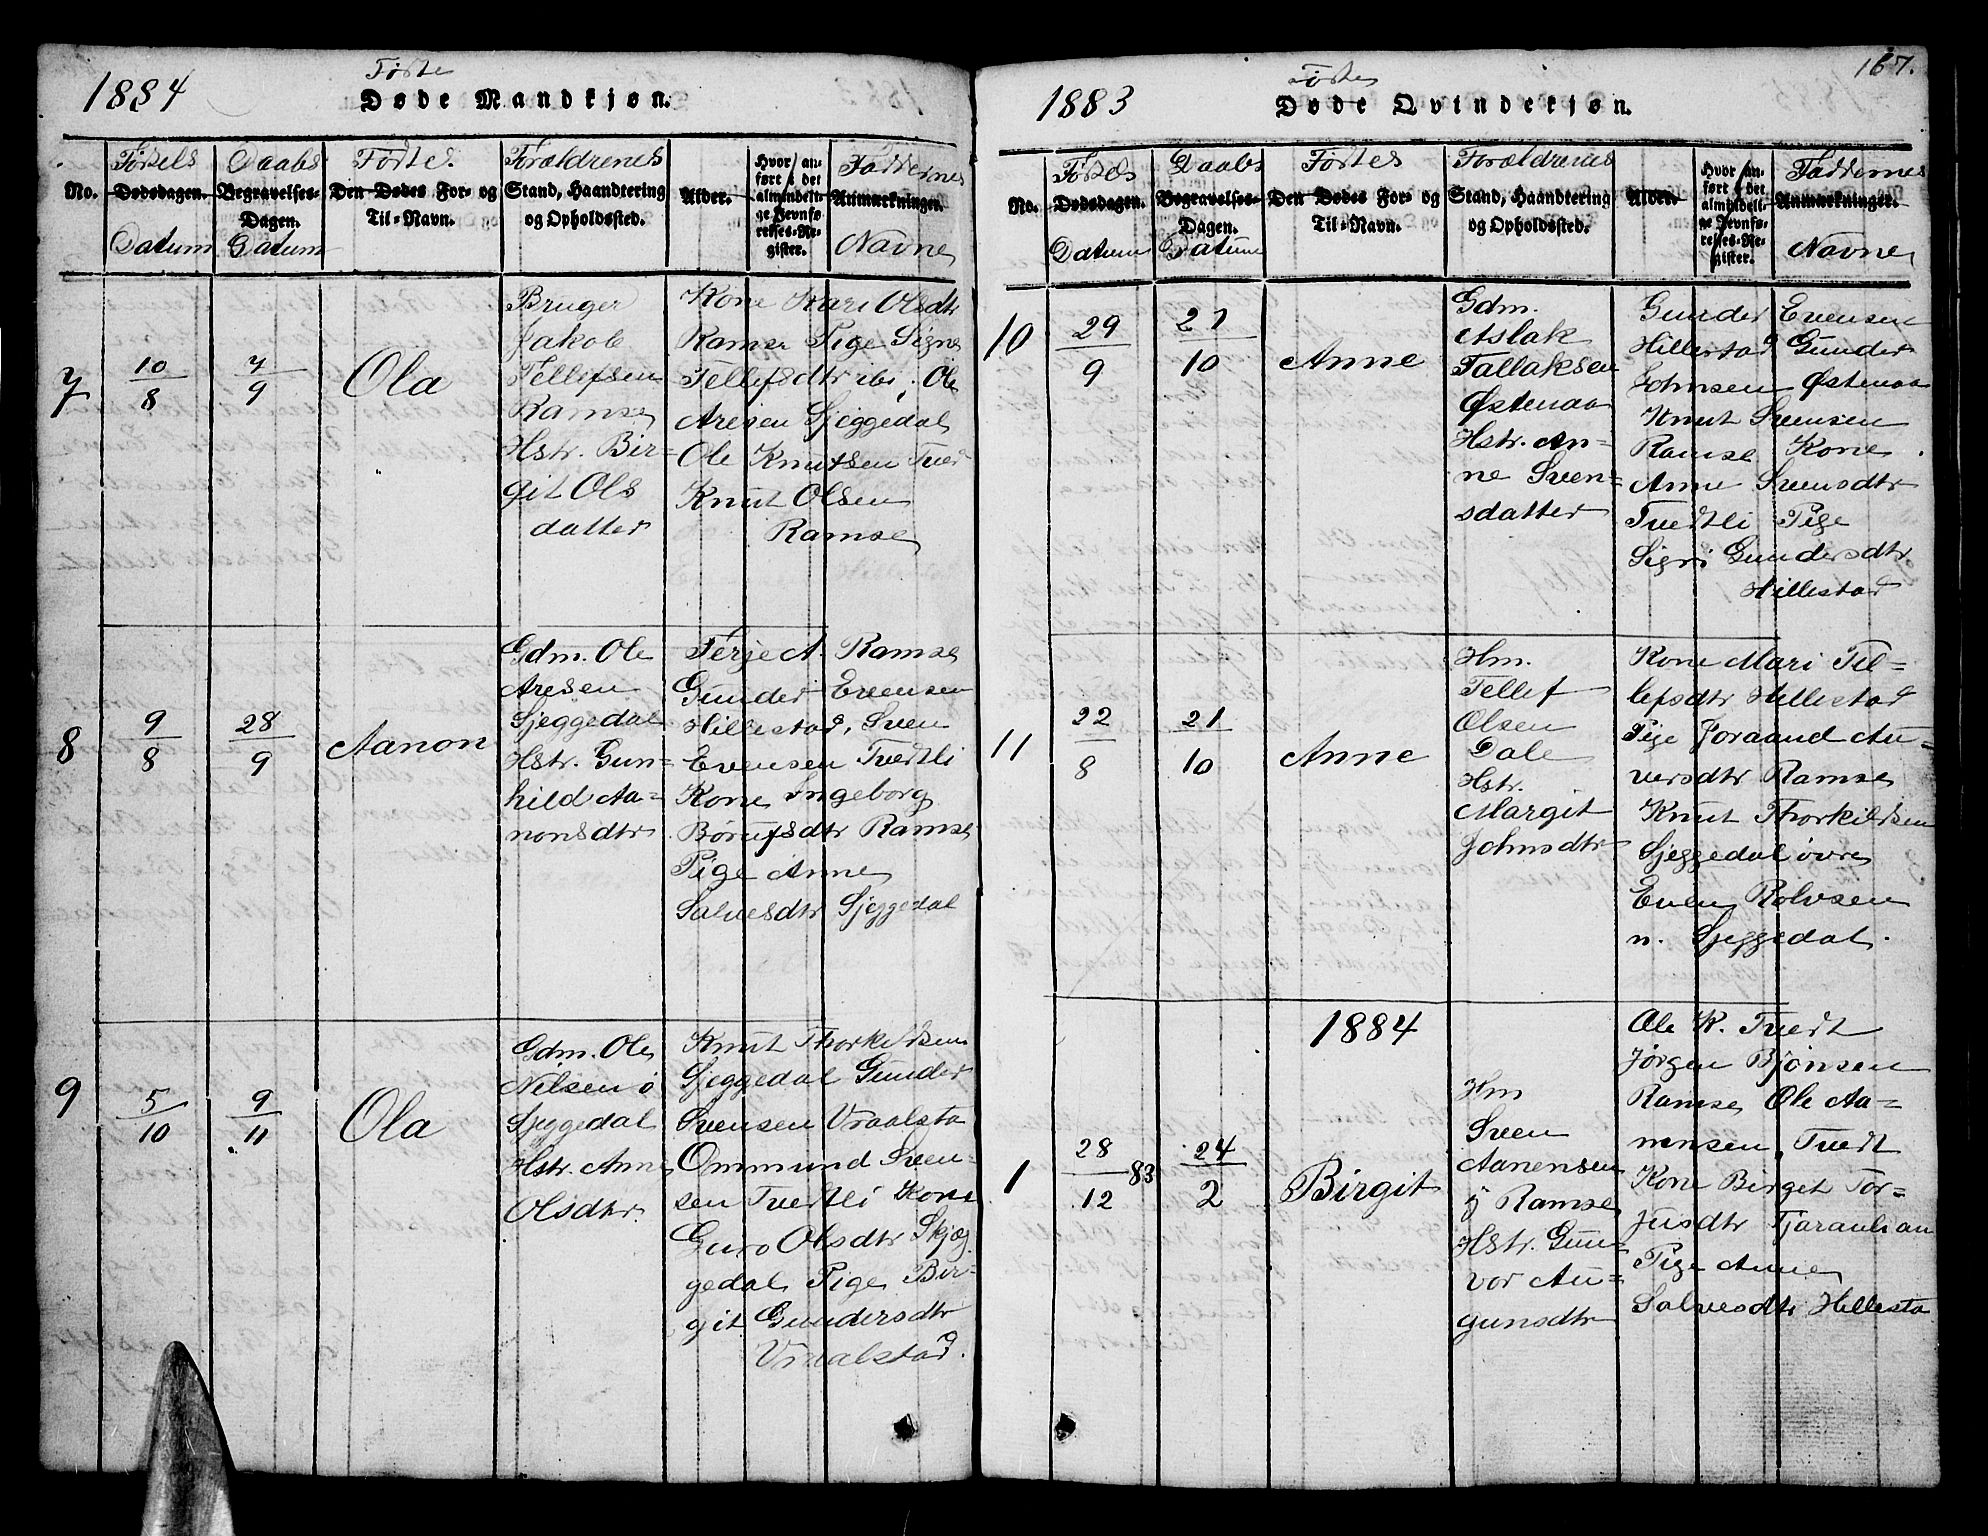 1884
Fødte
Døde Mandkjøn.
No.
Fødsels
Dødsdagen.
Datum
Daabs
Begravelses-
Dagen.
Datum
Fødtes
Den Dødes For- og
Til-Navn.
Forældrenes
Stand, Haandtering
og Opholdssted.
Alder.
Hvor an-
ført i det
almindeli-
ge Jevnfø-
relses-Re-
gister.
Faddernes
Anmærkninger.
Navne
7
10/8
7/9
Ola
Bruger
Jakob
Tellefsen
Ramse
Hstr. Bir-
git Ols
datter
Kone Kari Olsdtr
Ramse Pige Signe
Tellefsdtr ibi, Ole
Aresen Sjeggedal
Ole Knutsen Tved
Knut Olsen
Ramse
8
9/8
28/9
Aanon
Gdm. Ole
Aresen
Sjeggedal
Hstr. Gun-
hild Aa-
nonsdtr
Terje A. Ramse
Gunder Evensen
Hillestad, Sven
Evensen Tvedtli
Kone Ingeborg
Børufsdtr Ramse
Pige Anne
Salvesdtr Sjeggedal
9
5/10
9/11
Ola
Gdm. Ole
Nilsen ø
Sjeggedal
Hstr. Anne
Olsdtr.
Knut Thorkildsen
Sjeggedal Gunder
Svensen Vraalsta
Ommund Sven-
sen Tvedtli Kone
Guro Olsdtr Skjeg
gedal Pige Bir-
git Gundersdtr
Vraalstad.
167.
1883
Fødte
Døde Qvindekjøn.
No.
Fødsels
Dødsdagen.
Datum
Daabs
Begravelses-
Dagen.
Datum
Fødtes
Den Dødes For- og
Til-Navn.
Forældrenes
Stand, Haandtering
og Opholdssted.
Alder.
Hvor an-
ført i det
almindeli-
ge Jevnfø-
relses-Re-
gister.
Faddernes
Anmærkninger.
Navne
10
29/9
21/10
Anne
Gdm.
Aslak
Tallaksen
Østenaa
Hstr. An-
ne Sven-
sdatter
Gunder Evensen
Hillestad Gunder
Johnsen Østenaa
Knut Svensen
Ramse Kone
Anne Svensdtr
Tvedtli Pige
Sigri Gundersdtr
Hillestad
11
22/8
21/10
Anne
Hm.
Tellef
Olsen
Dale
Hstr.
Margit
Johnsdtr
Kone Mari Tel-
lefsdtr Hillestad
Pige Joraand Au-
versdtr Ramse
Knut Thorkildsen
Sjeggedal øvre
Even Rolvsen
n. Sjeggedal.
1884
1
28/12 83
24/2
Birgit
Hm
Sven
Aanensen
y Ramse
Hstr. Gun-
vor Au-
gunsdtr
Ole K. Tvedt
Jørgen Bjønsen
Ramse Ole Aa-
nensen, Tvedt
Kone Birget Tor-
jusdtr
Pige Anne
Salvesdtr Hillesta